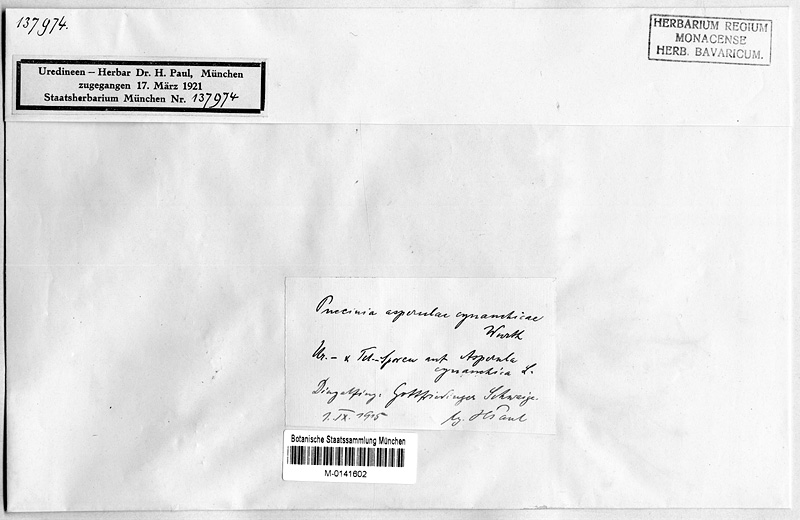 137974.
HERBARIUM REGIUM
MONACENSE
HERB. BAVARICUM.
Uredineen – Herbar Dr. H. Paul, München
zugegangen 17. März 1921
Staatsherbarium München Nr. 137974
Puccinia asperulae cynanchicae
Wurth
Ur.- & Tel.-Sporen auf Asperula
cynanchica L.
Dingolfing: Gottfriedinger Schwaige.
1. IX. 1915 lg. H Paul
Botanische Staatssammlung München
M-0141602